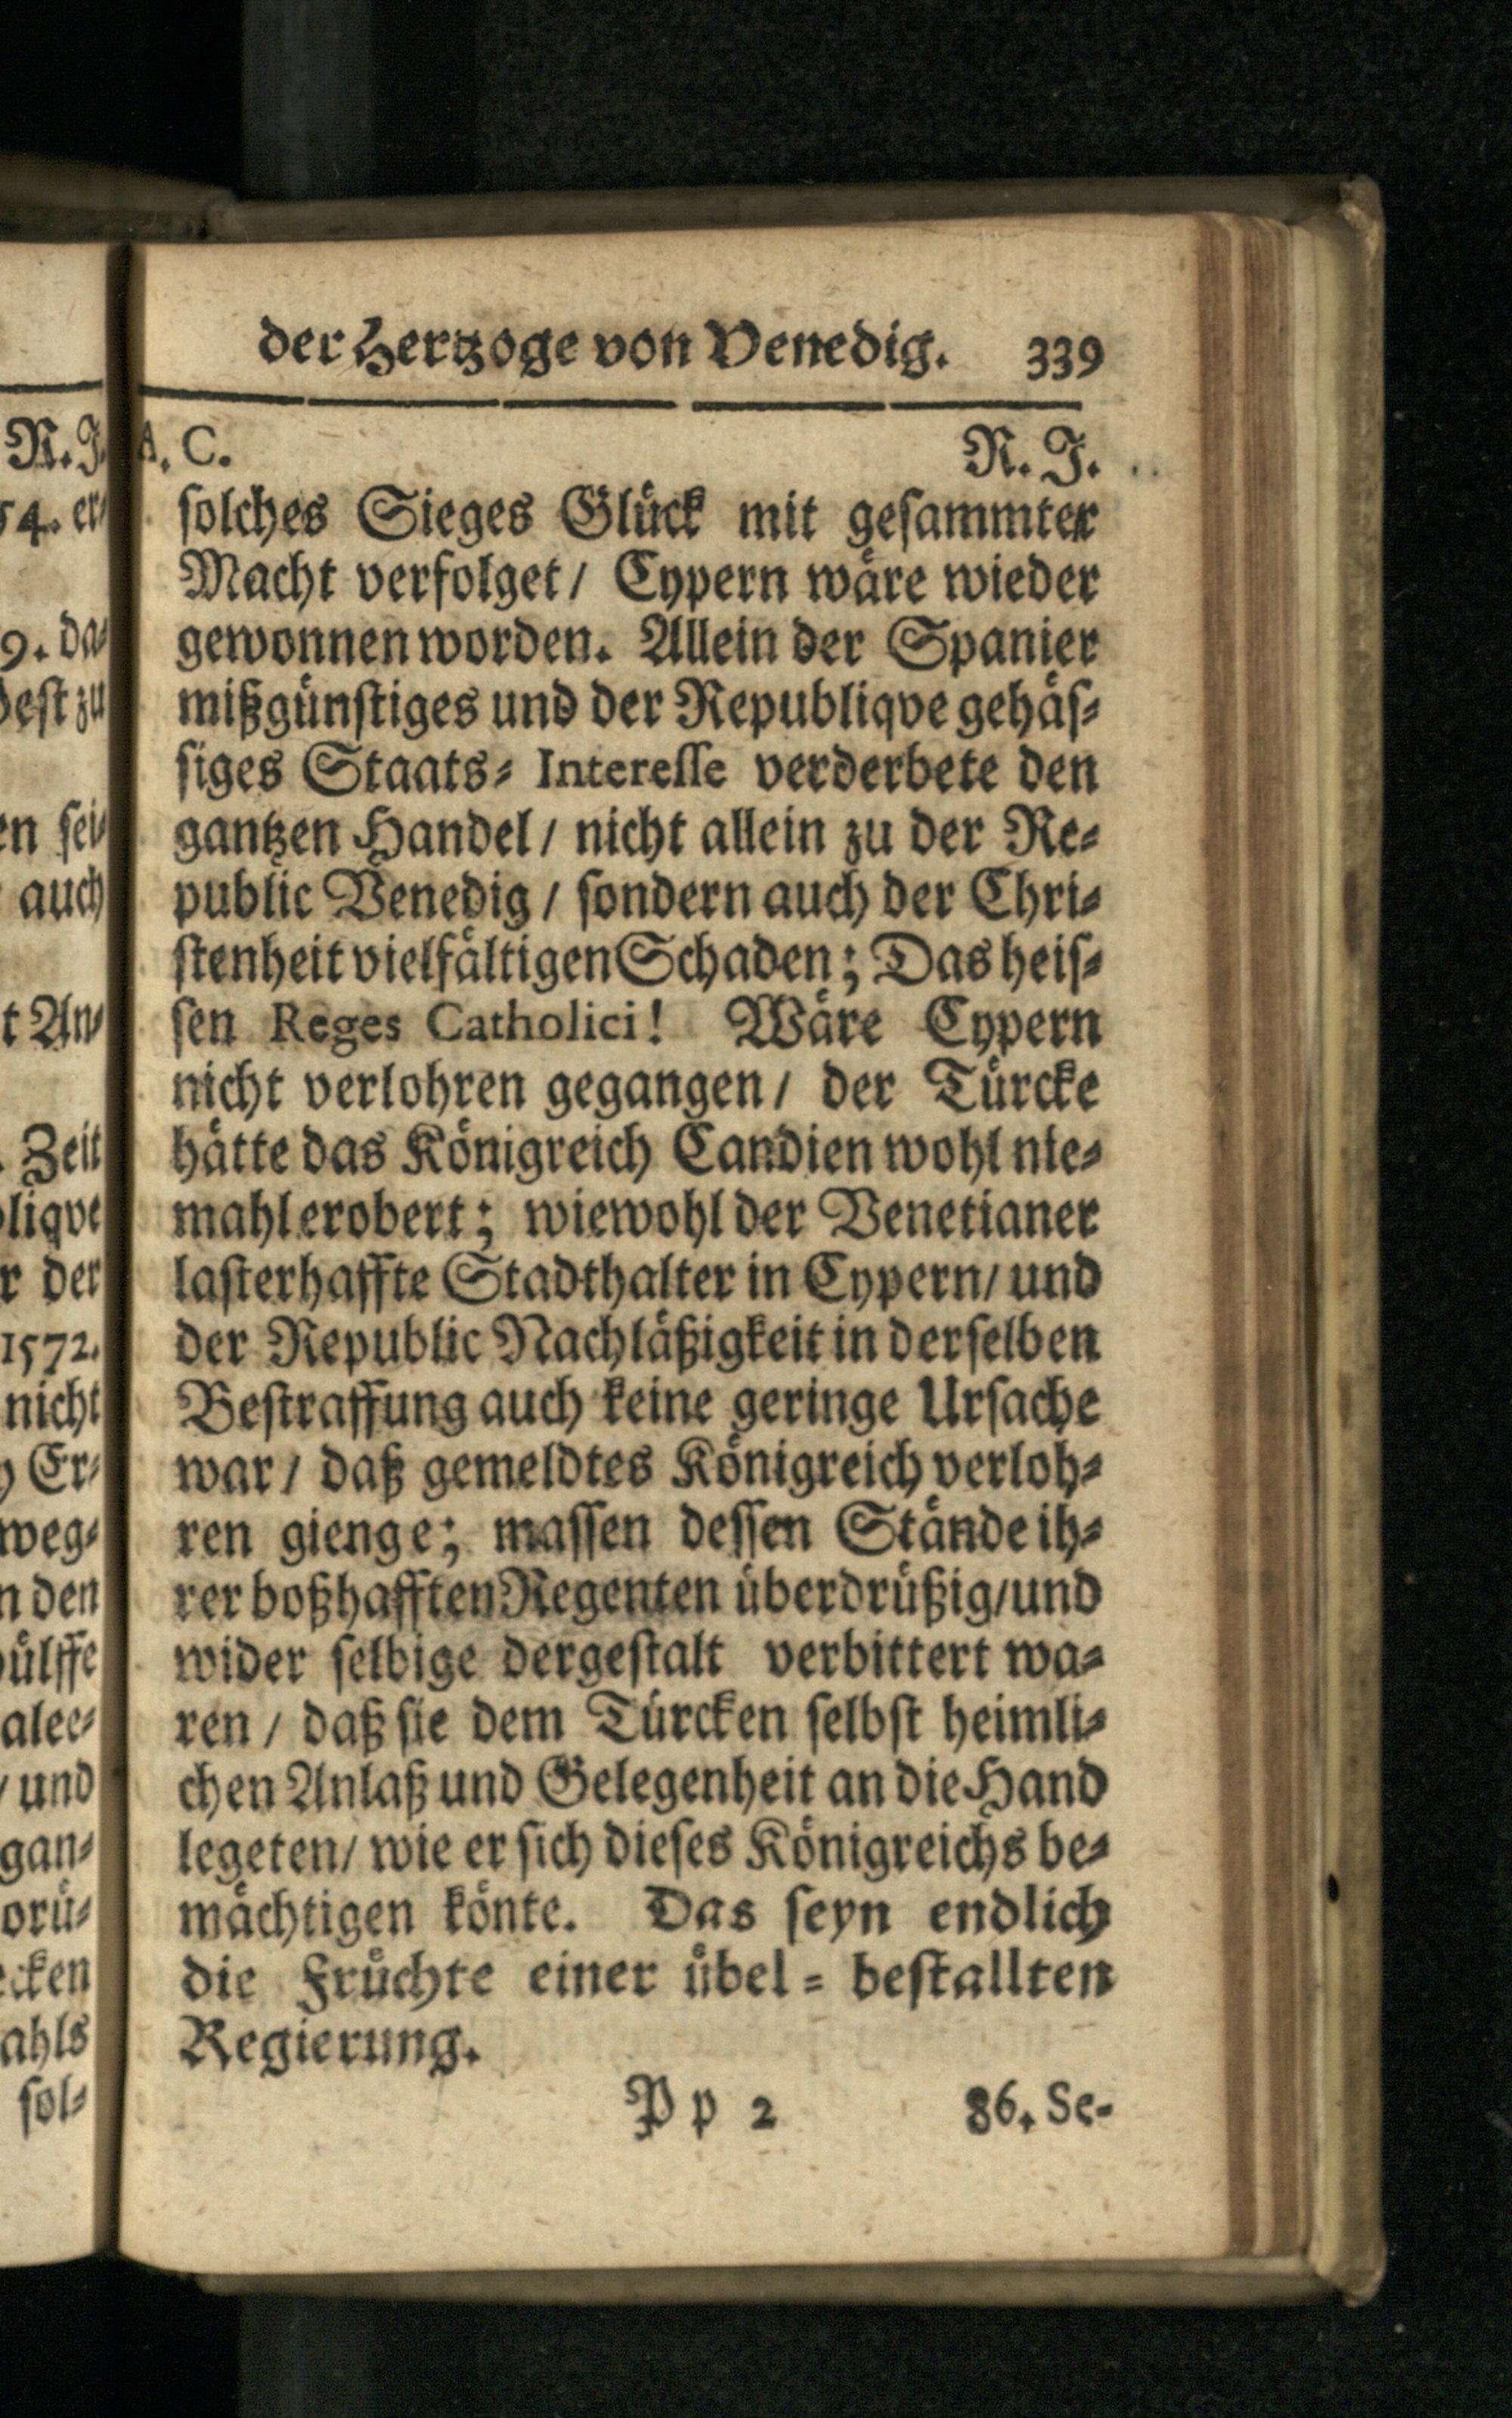 der Hertzoge von Venedig. 339
A. C. R. J.
solches Sieges Glück mit gesammter
Macht verfolget / Cypern wäre wieder
gewonnen worden. Allein der Spanier
mißgünstiges und der Republiqve gehäs-
siges Staats-Interesse verderbete den
gantzen Handel / nicht allein zu der Re-
public Venedig / sondern auch der Chri-
stenheit vielfältigen Schaden; Das heis-
sen Reges Catholici! Wäre Cypern
nicht verlohren gegangen / der Türcke
hätte das Königreich Candien wohl nie-
mahl erobert; wiewohl der Venetianer
lasterhaffte Stadthalter in Cypern / und
der Republic Nachläßigkeit in derselben
Bestraffung auch keine geringe Ursache
war / daß gemeldtes Königreich verloh-
ren gienge; massen dessen Stände ih-
rer boßhafften Regenten überdrüßig / und
wider selbige dergestalt verbittert wa-
ren / daß sie dem Türcken selbst heimli-
chen Anlaß und Gelegenheit an die Hand
legeten / wie er sich dieses Königreichs be-
mächtigen könte. Das seyn endlich
die Früchte einer übel-bestallten
Regierung.
Pp 2 86. Se-
R. J.
54. er-
9. da-
sei-
auch
An-
Zeit
der
1572.
nicht
Er-
weg-
den
und
sol-